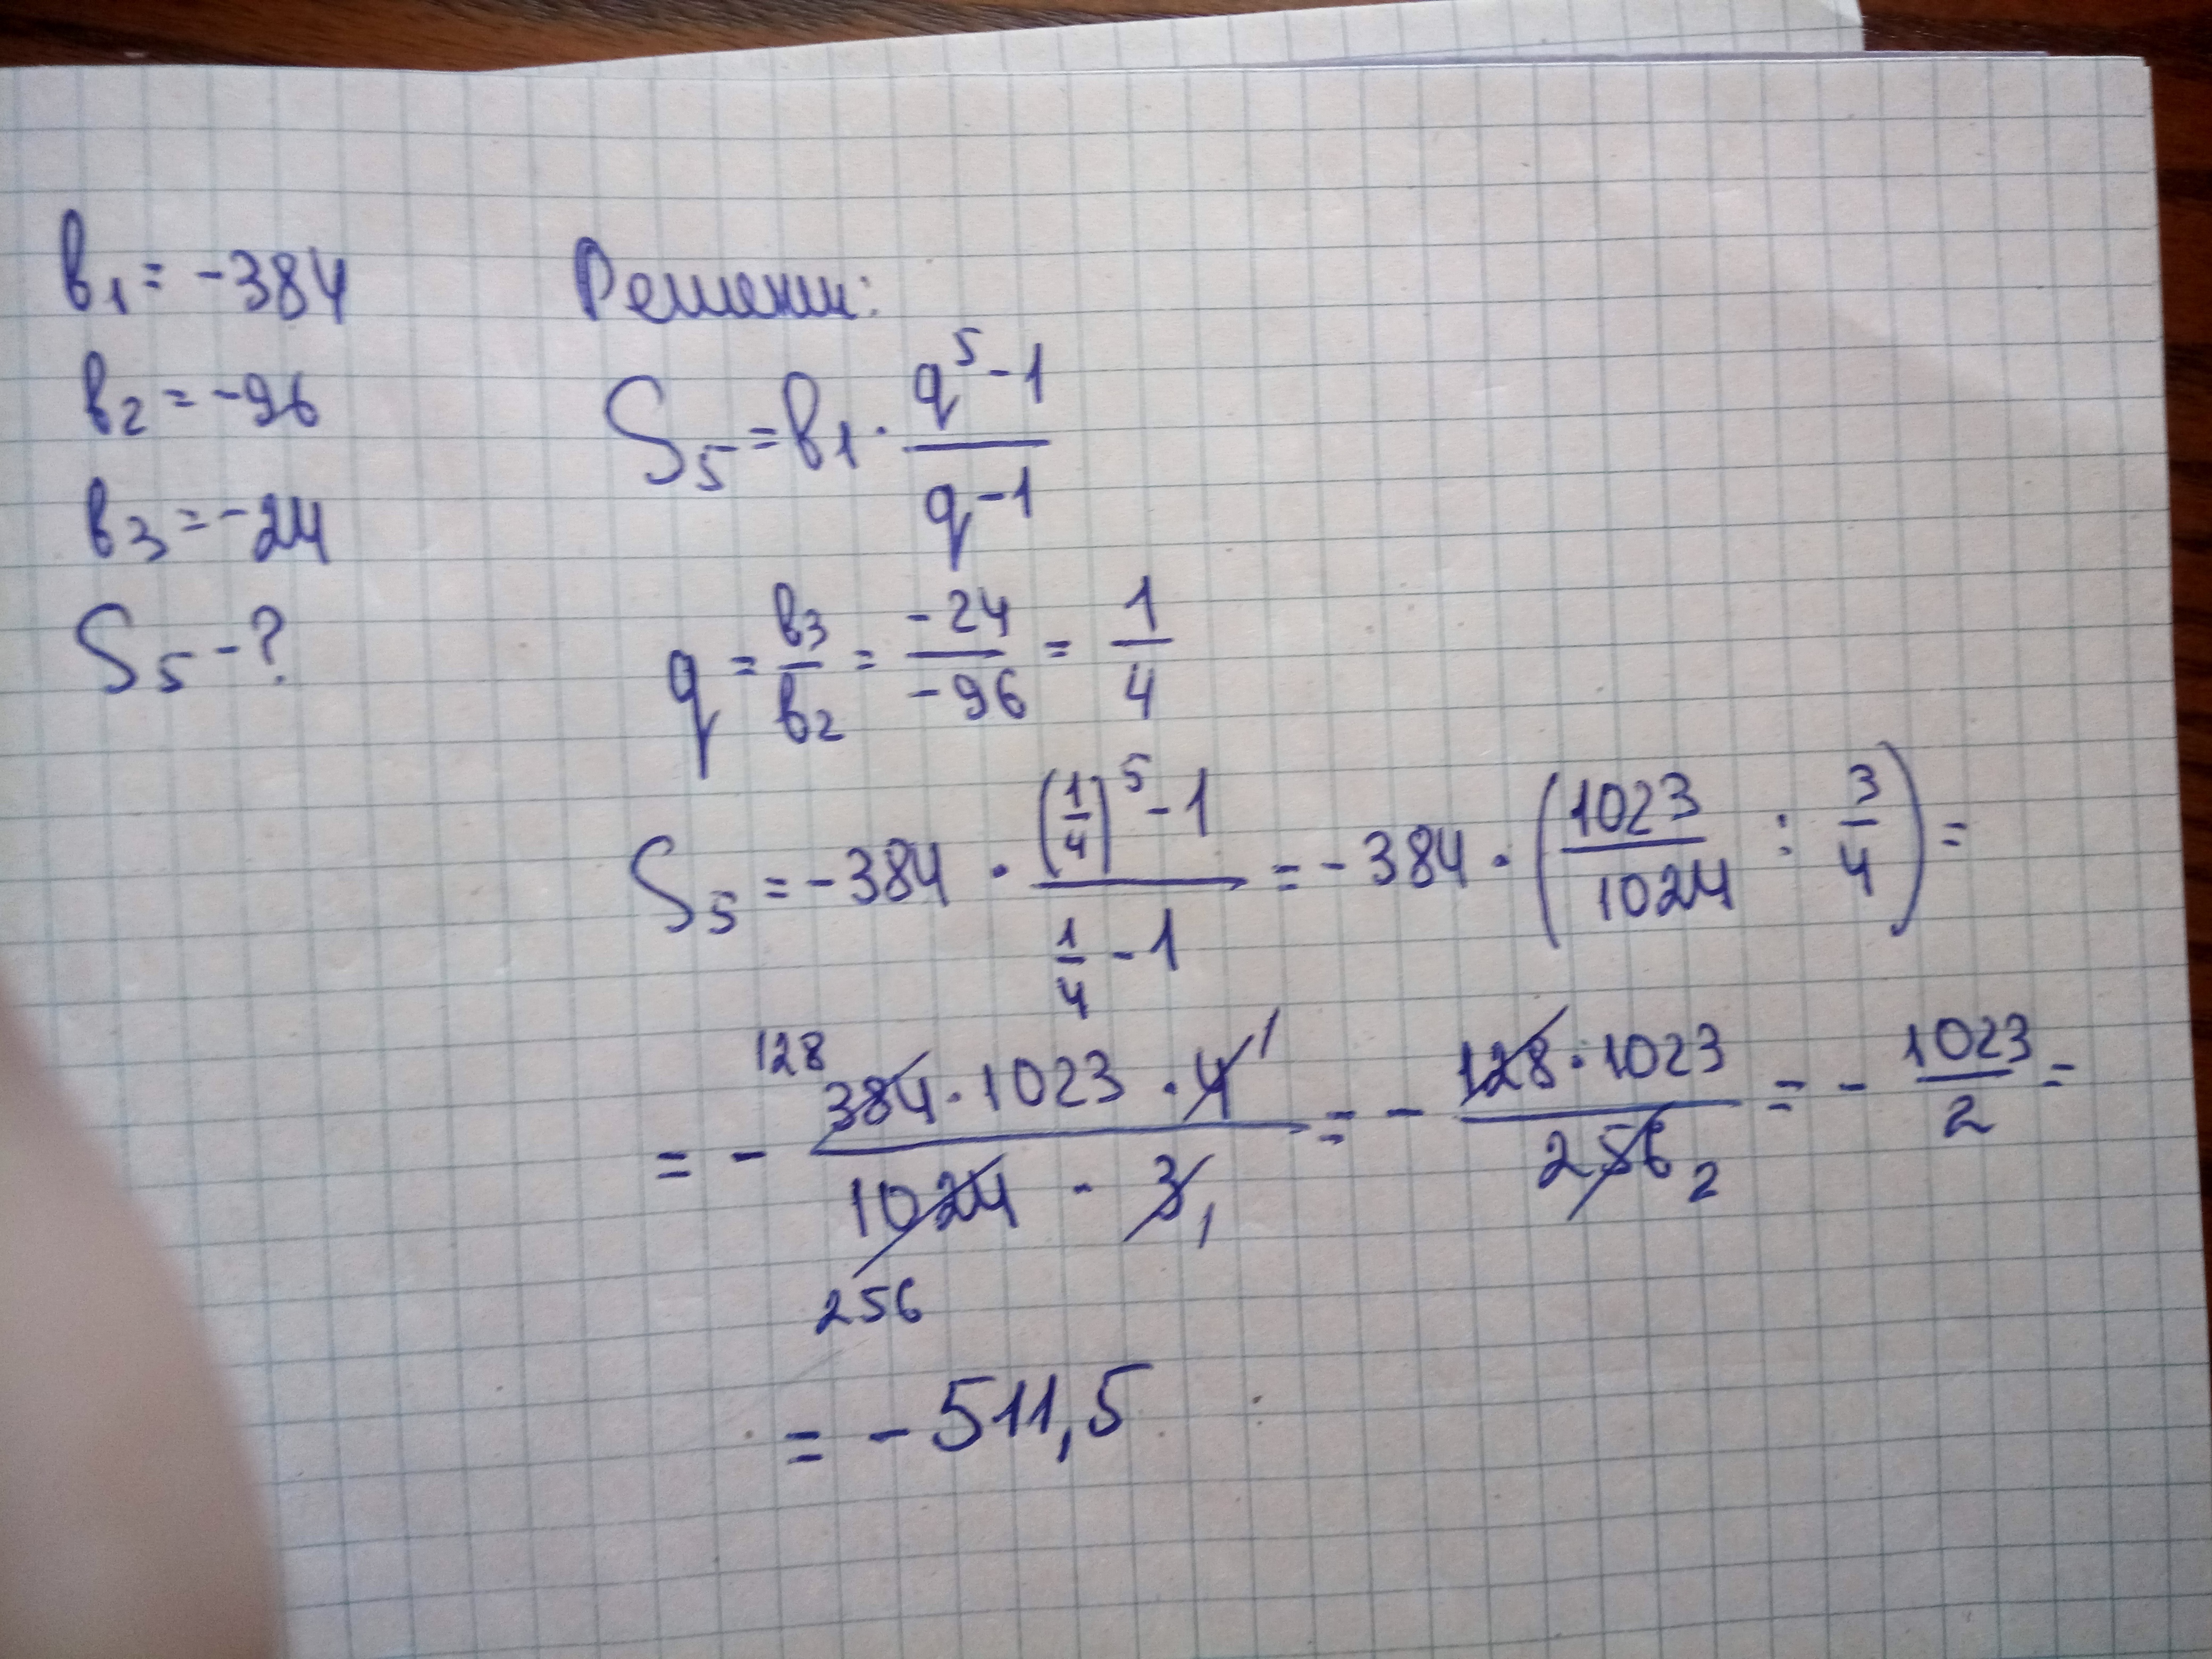 b₁ = -384
b₂ = -96
b₃ = -24
S₅ - ?
Решение:
S₅ = b₁ · (q⁵ - 1)/(q - 1)
q = b₃/b₂ = -24/-96 = 1/4
S₅ = -384 · ((1/4)⁵ - 1)/(1/4 - 1) = -384 · (1023/1024 : 3/4) =
128 1
= - (384 · 1023 · 4)/(1024 · 3) = - (128 · 1023)/256 = - 1023/2 =
256 1 2
= -511,5